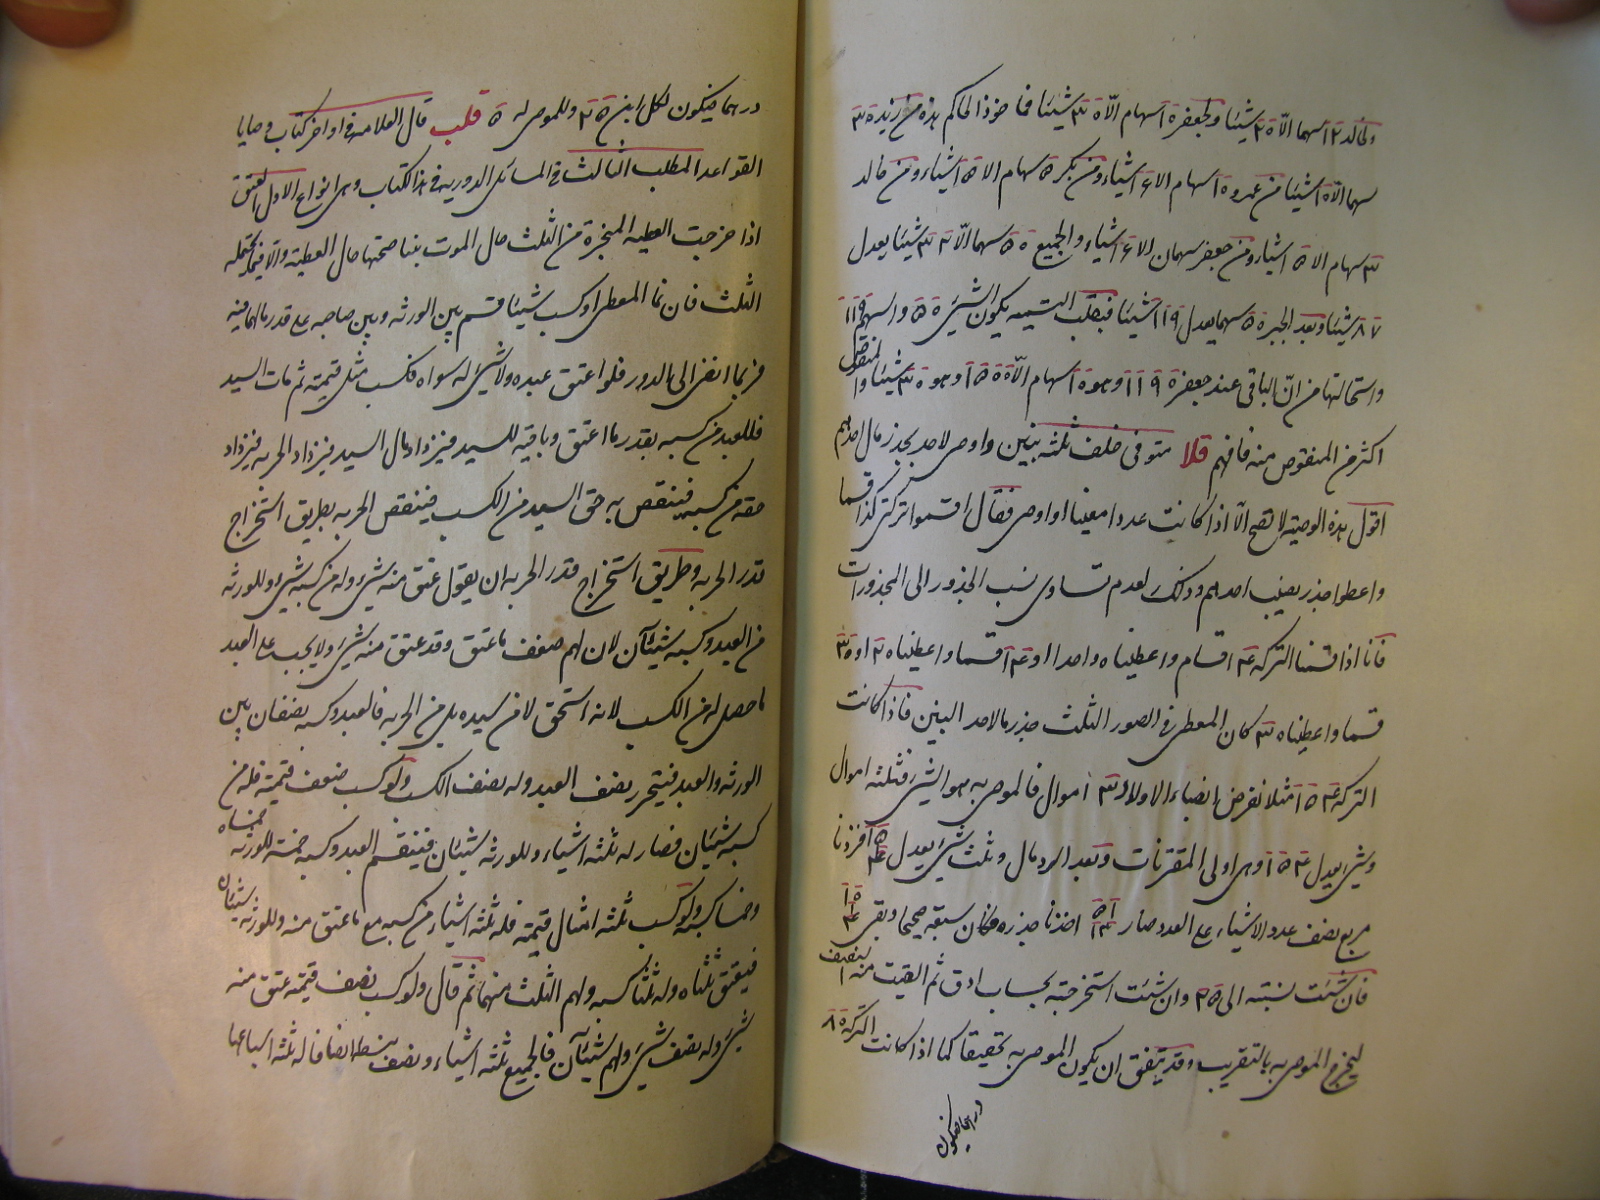 ولخالد ١٢ اسهما الّا ٢٥ شيئا ولجعفر ١٥ اسهام الّا ٣٥ شيئا فما خوذ الحاكم من زيد ٣٥
سهما الّا ١٥ شيئا من عمرو ١٥ سهام الا ١٤ اشياء ومن بكر ٥ سهام الا ١٥ اشياء ومن خالد
٣ سهام الا ١٥ اشياء ومن جعفر سهمان الا ١٤ اشياء والجميع ٥٥ سهما الّا ٣٢ شيئا يعدل
٨٧ شيئا وبعد الجبر ٥٥ سهما يعدل ١١٩ شيئا فبقلب التسميه يكون الشيئ ٥٥ والسهم ١١٩
واستحالتها من انّ الباقى عند جعفر وهو اسهام الّا وهو شيئا والمنقوص
اكثر من المنقوص منه فافهم قلا متوفى خلف ثلثه بنين واوصى لاحد بجذر مال احدهم
اقول هذه الوصيّه لا تصح الّا اذا كانت عددا معينا او اوصى فقال اقسموا تركتى كذا قسما
واعطوا جذر نصيب احدهم وذلك لعدم تساوى نسب الجذور الى المجذورات
فانا اذا قسمنا التركه ٤ اقسام واعطيناه واحدا او ١٤ قسما واعطيناه ٢ او ٣٥
قسما واعطيناه ٣ كان المعطى فى الصور الثلث جذر ما لاحد البنين فاذا كانت
التركه ١٥٤ مثلا نفرض انصباء الاولاد ٣ اموال فالموصى به هو الشيئ فثلثه اموال
وشيئ يعدل ١٥٤ وهى اولى المقترنات وبعد الرد مال وثلث شيئ يعدل افرزنا
مربع نصف عدد الاشياء على العدد صار اخذنا جذره فكان سبعه صحيحا وبقى
فان شئت نسبته الى ٢٥ وان شئت استخرجته بحساب ادق ثم القيت منه النصف
ليخرج الموصى به بالتقريب وقد يتفق ان يكون الموصى به تحقيقا كما اذا كانت التركه ٨٥
درهما فيكون
درهما فيكون لكل ابن ٢٥ وللموصى له ٥ قلب قال العلامه فى اواخر كتاب وصايا
القواعد المطلب الثالث فى المسائل الدوريه فى هذا الكتاب وهى انواع الاول العتق
اذا خرجت العطيه المنجزة من الثلث حال الموت بنينا صحتها حال العطيه والّا فيما يحتمله
الثلث فان نما المعطى او كسب شيئا قسم بين الورثه وبين صاحبه على قدر مالهما فيه
فربما افضى الى الدور فلو اعتق عبده ولا شيئ له سواه فكسب مثل قيمته ثم مات السيد
فللعبد من كسبه بقدر ما اعتق وباقيه للسيد فيزداد مال السيد فيزداد الحريه فيزداد
حقه من كسبه فينقص به حق السيد من الكسب فينقص الحريه بطريق استخراج
قدر الحريه وطريق استخراج قدر الحريه ان يقول عتق منه شيئ وله من كسبه شيئ وللورثه
من العبد وكسبه شيئان لان لهم ضعف ما عتق وقد عتق منه شيئ ولا يحسب على العبد
ما حصل له من الكسب لانه استحق لا من سيده بل من الحريه فالعبد وكسبه نصفان بين
الورثه والعبد فيتحرر نصف العبد وله نصف الكسب ولو كسب ضعف قيمته فله من
كسبه شيئان فصار له ثلثه اشياء وللورثه شيئان فينقسم العبد وكسبه خمسه للورثه خمساه
وخمسا كسبه ولو كسب ثلثه امثال قيمته فله ثلثه اشياء من كسبه مع ما عتق منه وللورثه شيئان
فيعتق ثلثاه وله ثلثا كسبه ولهم الثلث منهما ثم قال ولو كسب نصف قيمته عتق منه
شيئ وله نصف شيئ ولهم شيئان فالجميع ثلثه اشياء ونصف بسطه انصافا له ثلثه اسباعها